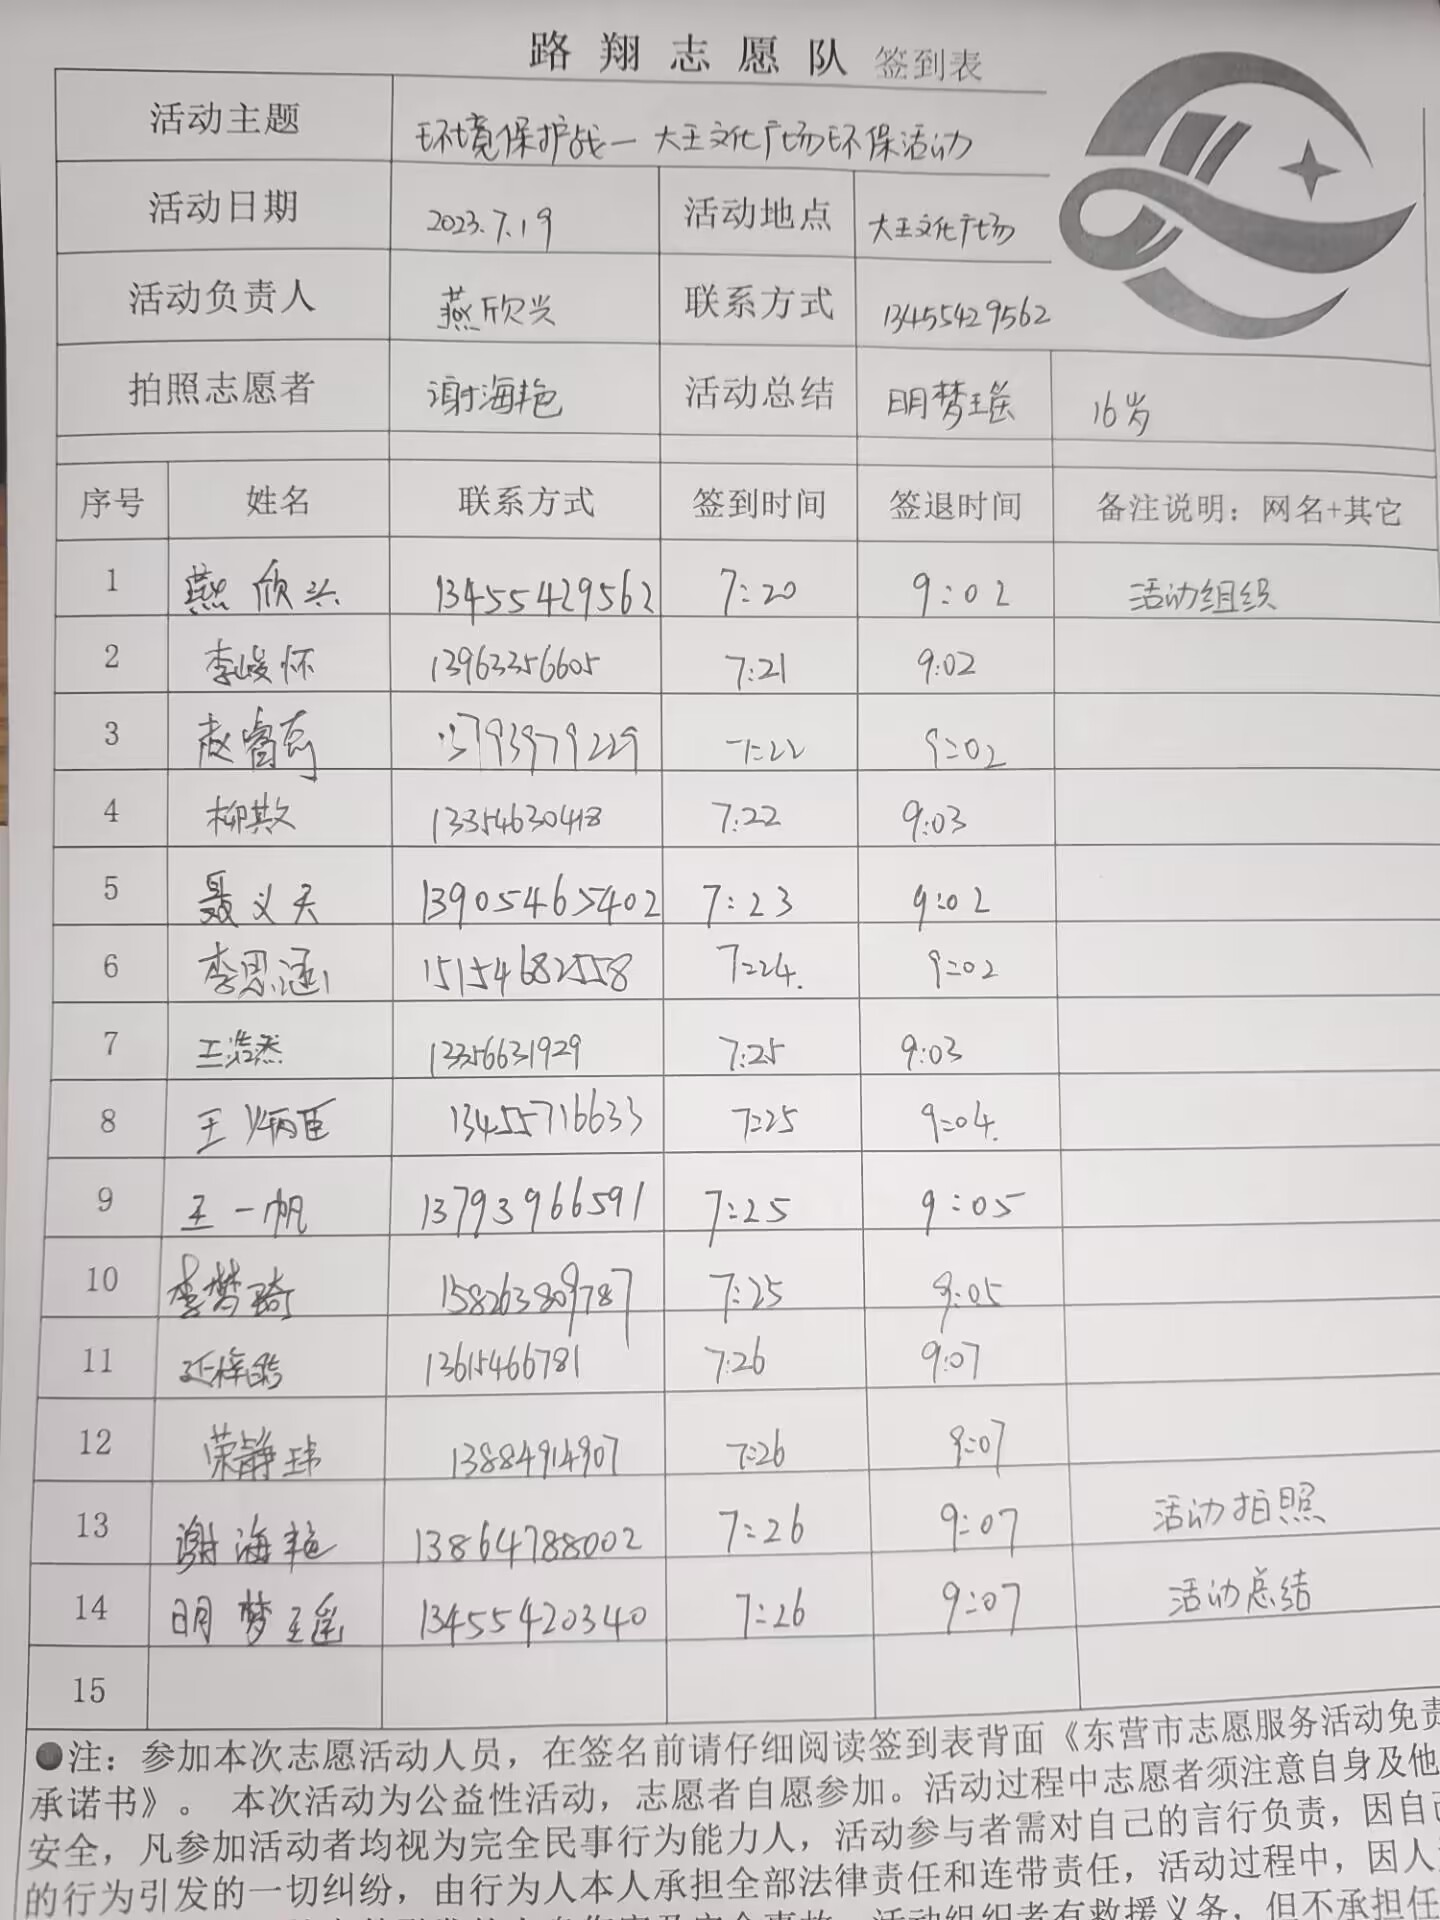 路翔志愿队 签到表
活动主题 环境保护战一大王文化广场环保活动
活动日期 2023.7.19 活动地点 大王文化广场
活动负责人 燕欣兴 联系方式 13455429562
拍照志愿者 谢海艳 活动总结 明梦瑶 16岁
序号 姓名 联系方式 签到时间 签退时间 备注说明：网名+其它
1 燕欣兴 13455429562 7:20 9:02 活动组织
2 李峻怀 13963356605 7:21 9:02
3 赵睿 13793979229 7:22 9:02
4 柳 13354630418 7:22 9:03
5 聂义天 13905465402 7:23 9:02
6 李思涵 15154682558 7:24. 9:02
7 王浩然 13356631929 7:25 9:03
8 王炳臣 13455716633 7:25 9:04.
9 王一帆 13793966591 7:25 9:05
10 李梦琦 158263809787 7:25 9:05
11 延梓皓 13615466781 7:26 9:07
12 荣静玮 13884914907 7:26 9:07
13 谢海艳 13864788002 7:26 9:07 活动拍照
14 明梦瑶 13455420340 7:26 9:07 活动总结
15
●注：参加本次志愿活动人员，在签名前请仔细阅读签到表背面《东营市志愿服务活动免责
承诺书》。 本次活动为公益性活动，志愿者自愿参加。活动过程中志愿者须注意自身及他
安全，凡参加活动者均视为完全民事行为能力人，活动参与者需对自己的言行负责，因自己
的行为引发的一切纠纷，由行为人本人承担全部法律责任和连带责任，活动过程中，因人
活动组织者有救援义务，但不承担任